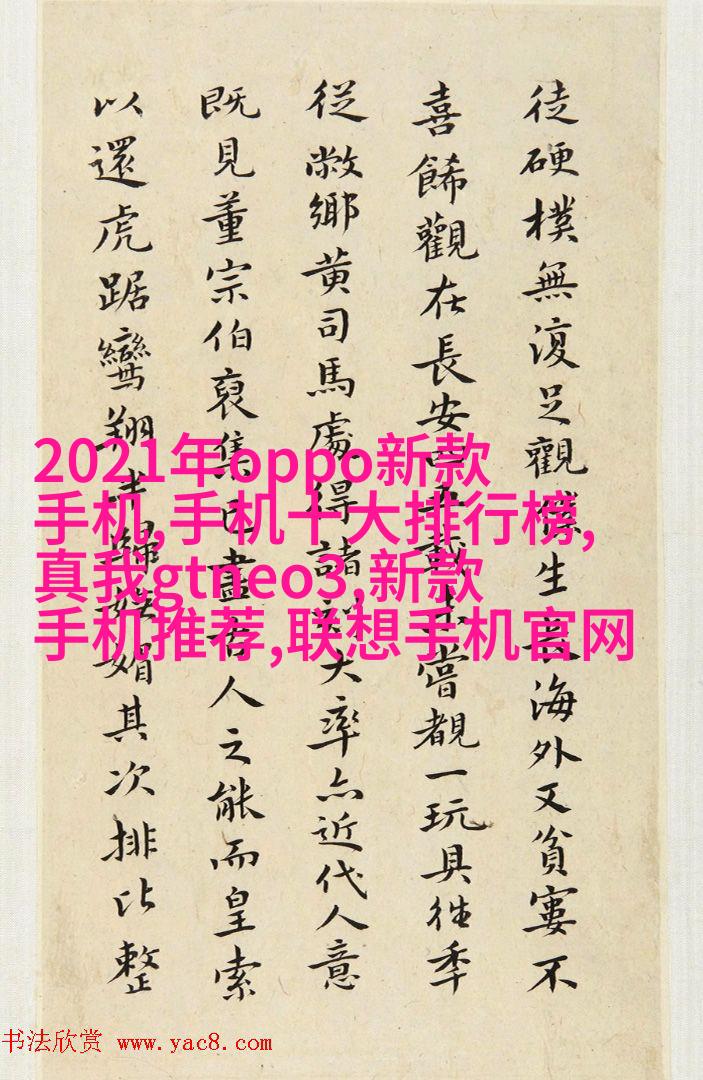 徒硬樸無復足觀僕生長海外又貧窶不
喜餙觀在長安四五載未嘗覩一玩具往季
從敝鄉黄司馬處得諸刻大率亦近代人意
既見董宗伯裒集已盡古人之能而皇索
以還虎踞鸞翔歸媚其次排比整
2021年oppo新款
手机,手机十大排行榜,
真我gtneo3,新款
手机推荐,联想手机官网
书法欣赏 www.yac8.com